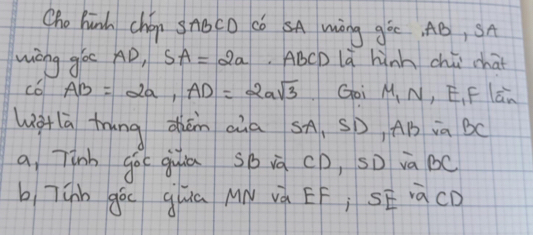 Cho hình chóp SABCD có SA vuông góc AB, SA
vuông góc AD, SA = 2a. ABCD là hình chữ nhật
có AB = 2a, AD = 2a√3. Gọi M, N, E, F lần
lượt là trung điểm của SA, SD, AB và BC
a, Tính góc giữa SB và CD, SD và BC
b, Tính góc giữa MN và EF; SE và CD